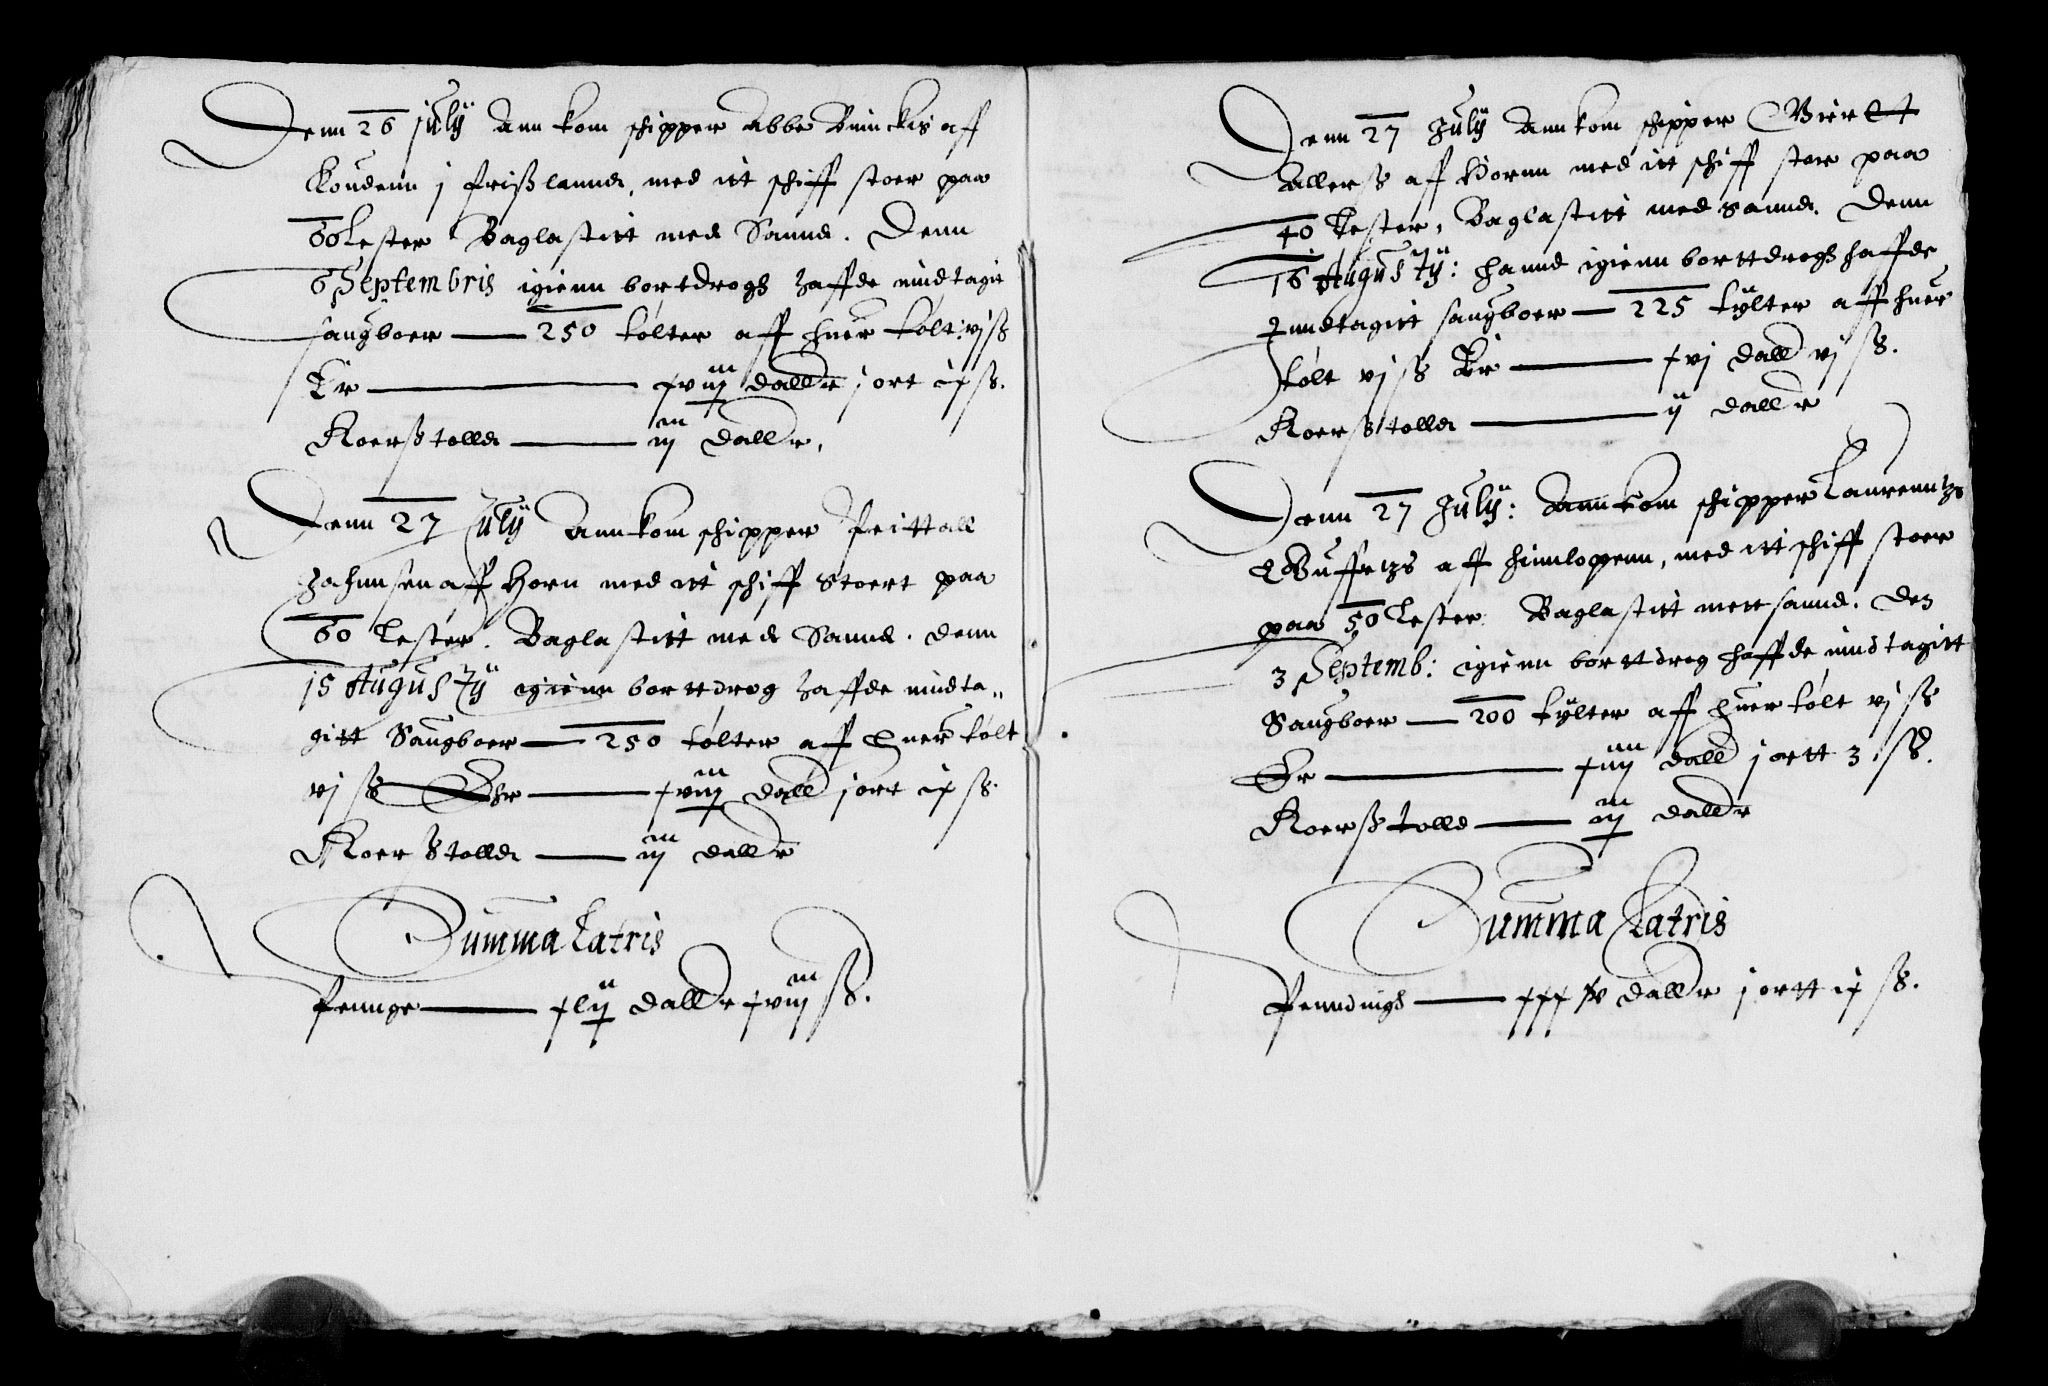 Denn 26 july ann kom schipper Abbe Buinckis aff
Koudenn j frißlannd, med itt schiff stoer paa
60 Lester Baglastitt med Sannd. Denn
6 Septembris igienn bortdrogh haffde inndtagit
saugboer — 250 tølter aff huer tølt vj ß
Er — xviij dallr j ort ix ß.
Koerßtolld — iij dallr.
Denn 27 July Annkom schipper Peittall
Jahannsen aff Horn med itt schiff stoert paa
60 Lester. Baglastitt med Sannd. denn
15 Augusty igienn borttdrog haffde inndta„
gitt Saugboer — 250 tølter aff huer tølt
vj ß Ehr — xviij dall j ort ix ß.
Koerßtolld — iij dallr
Summa Latris
Pennge — xlij dallr xviij ß.
Denn 27 July Annkom schipper
Allerß aff Hornn med itt schiff stor paa
40 Lester, Baglastitt med sannd. Denn
16 Augusty: hannd igienn borttdrogh haffde
Inndtagitt saugboer — 225 tylter aff huer
tølt vj ß Er — xvj dall vj ß.
Koerßtolld — ij dallr
Denn 27 July: Annkom schipper Laurenntzs
Wuffetzs aff hinnlopenn, med itt schiff stoer
paa 50 Lester Baglastitt mett sannd. Den
3 Septemb: igienn borttdrog haffde inndtagitt
Saugboer — 200 tylter aff huer tølt vj ß
Er — xiiij dall j ortt 3 ß.
Koerßtolld — iij dallr
Summa Latris
Penndingh — xxxv dallr j ortt ix ß.